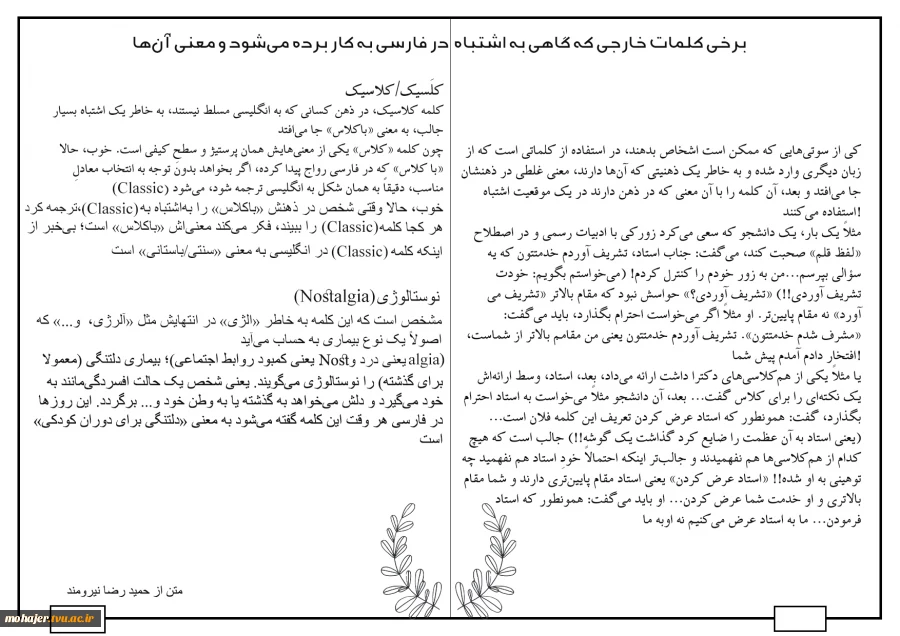 برخی کلمات خارجی که گاهی به اشتباه در فارسی به کار برده می‌شود و معنی آن‌ها
کی از سوتی‌هایی که ممکن است اشخاص بدهند، در استفاده از کلماتی است که از
زبان دیگری وارد شده و به خاطر یک ذهنیتی که آن‌ها دارند، معنی غلطی در ذهنشان
جا می‌افتد و بعد، آن کلمه را با آن معنی که در ذهن دارند در یک موقعیت اشتباه
!استفاده می‌کنند
مثلاً یک بار، یک دانشجو که سعی می‌کرد زورکی با ادبیات رسمی و در اصطلاح
«لفظ قلم» صحبت کند، می‌گفت: جناب استاد، تشریف آوردم خدمتتون که یه
سؤالی بپرسم...من به زور خودم را کنترل کردم! (می‌خواستم بگویم: خودت
تشریف آوردی!!) «تشریف آوردی؟» حواسش نبود که مقام بالاتر «تشریف می
آورد» نه مقام پایین‌تر. او مثلاً اگر می‌خواست احترام بگذارد، باید می‌گفت:
«مشرف شدم خدمتتون». تشریف آوردم خدمتتون یعنی من مقامم بالاتر از شماست،
!افتخار دادم آمدم پیش شما
یا مثلاً یکی از هم‌کلاسی‌های دکترا داشت ارائه می‌داد، بعد، استاد، وسط ارائه‌اش
یک نکته‌ای را برای کلاس گفت... بعد، آن دانشجو مثلاً می‌خواست به استاد احترام
بگذارد، گفت: همونطور که استاد عرض کردن تعریف این کلمه فلان است...
(یعنی استاد به آن عظمت را ضایع کرد گذاشت یک گوشه!!) جالب است که هیچ
کدام از هم‌کلاسی‌ها هم نفهمیدند و جالب‌تر اینکه احتمالاً خودِ استاد هم نفهمید چه
توهینی به او شده!! «استاد عرض کردن» یعنی استاد مقام پایین‌تری دارند و شما مقام
بالاتری و او خدمت شما عرض کردن... او باید می‌گفت: همونطور که استاد
فرمودن... ما به استاد عرض می‌کنیم نه اوبه ما
کلَسیک/کلاسیک
کلمه کلاسیک، در ذهن کسانی که به انگلیسی مسلط نیستند، به خاطر یک اشتباه بسیار
جالب، به معنی «باکلاس» جا می‌افتد
چون کلمه «کلاس» یکی از معنی‌هایش همان پرستیژ و سطح کیفی است. خوب، حالا
«با کلاس» که در فارسی رواج پیدا کرده، اگر بخواهد بدون توجه به انتخاب معادلِ
مناسب، دقیقاً به همان شکل به انگلیسی ترجمه شود، می‌شود (Classic)
خوب، حالا وقتی شخص در ذهنش «باکلاس» را به‌اشتباه به (Classic)،ترجمه کرد
هر کجا کلمه(Classic) را ببیند، فکر می‌کند معنی‌اش «باکلاس» است؛ بی‌خبر از
اینکه کلمه (Classic) در انگلیسی به معنی «سنتی/باستانی» است
نوستالوژی(Nostalgia)
مشخص است که این کلمه به خاطر «الژی» در انتهایش مثل «آلرژی، و...» که
اصولاً یک نوع بیماری به حساب می‌آید
(algia یعنی درد و Nost یعنی کمبود روابط اجتماعی)؛ بیماری دلتنگی (معمولا
برای گذشته) را نوستالوژی می‌گویند. یعنی شخص یک حالت افسردگی‌مانند به
خود می‌گیرد و دلش می‌خواهد به گذشته یا به وطن خود و... برگردد. این روزها
در فارسی هر وقت این کلمه گفته می‌شود به معنی «دلتنگی برای دوران کودکی»
است
متن از حمید رضا نیرومند
mohajer.tvu.ac.ir